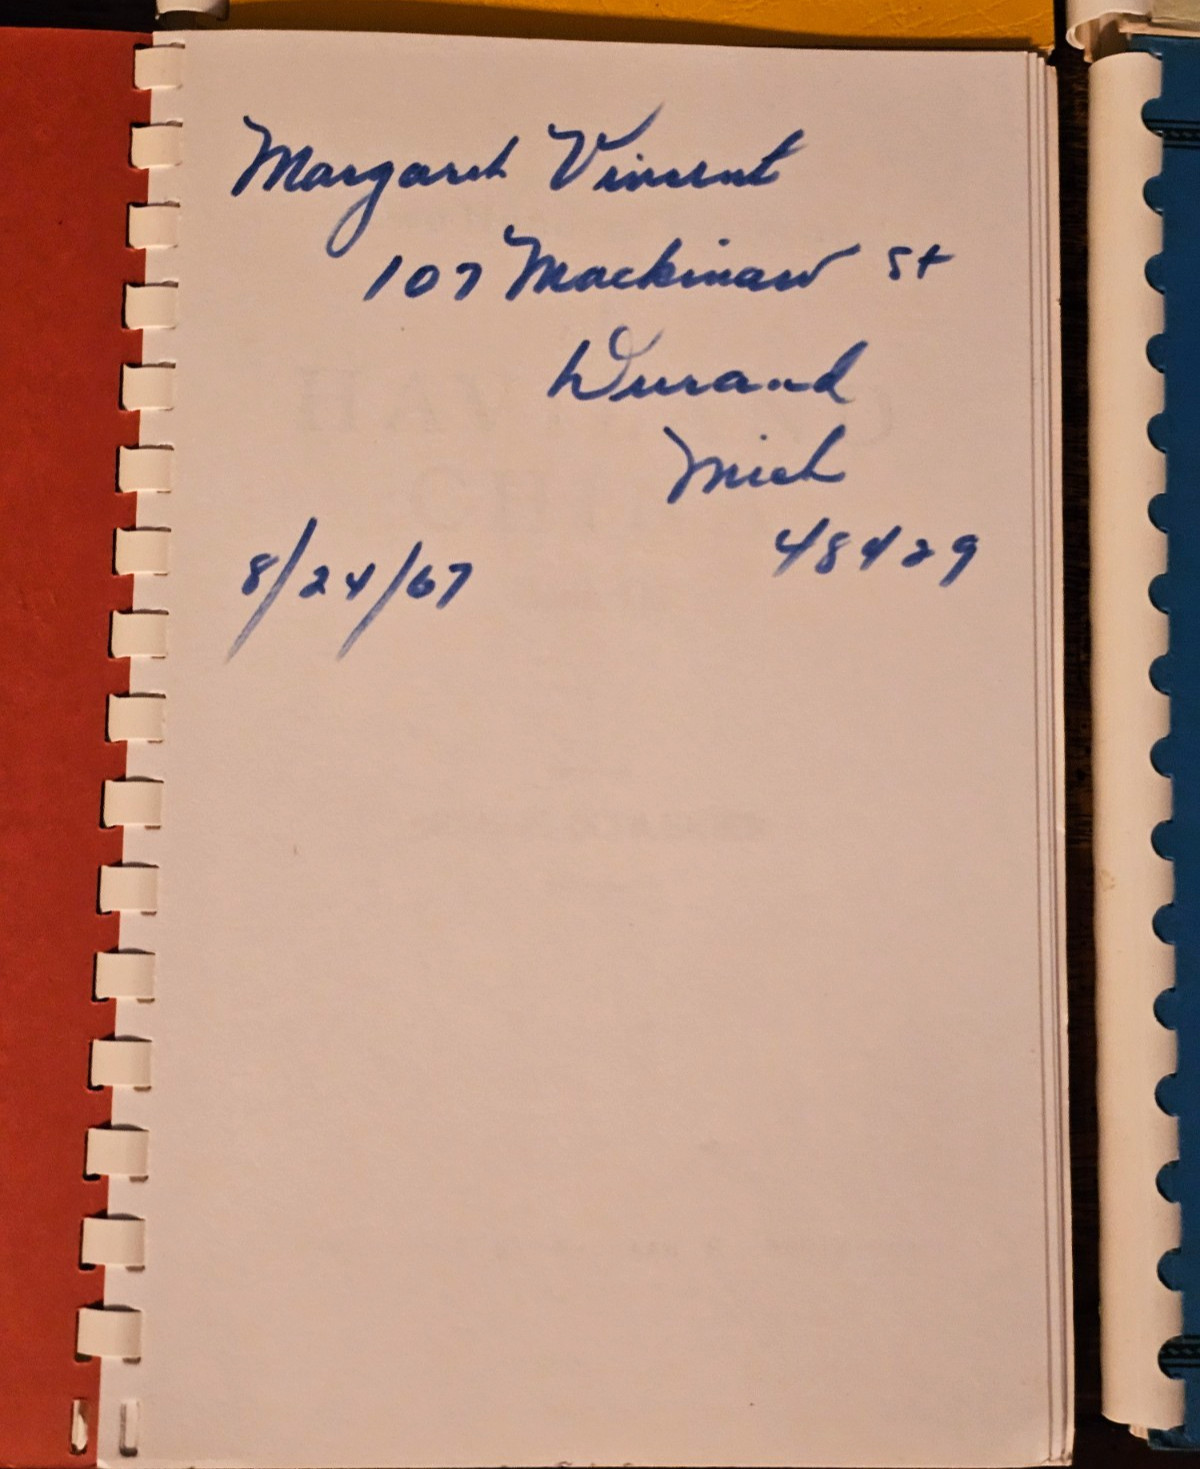 Margaret Vincent
107 Mackinaw St
Durand
Mich
48429
8/24/67
HAVILAND
CHINA